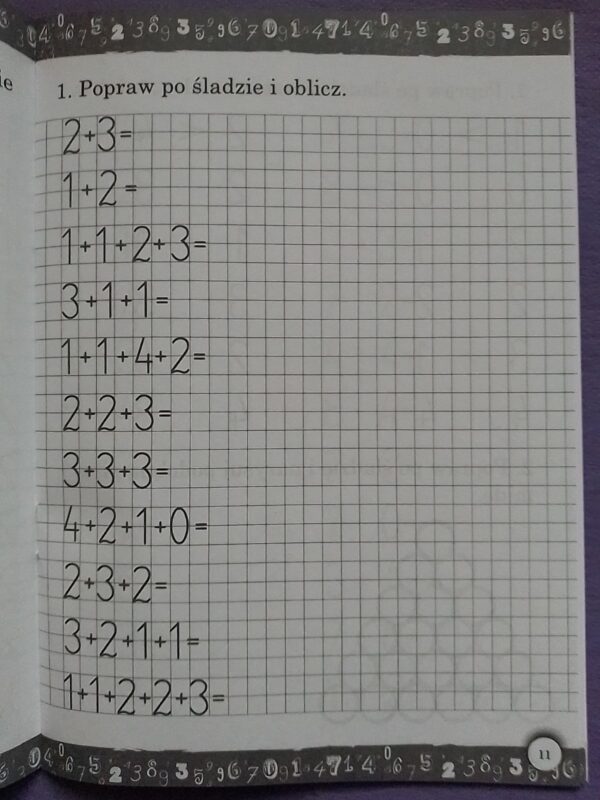 ie
1. Popraw po śladzie i oblicz.
2+3=
1+2=
1+1+2+3=
3+1+1=
1+1+4+2=
2+2+3=
3+3+3=
4+2+1+0=
2+3+2=
3+2+1+1=
1+1+2+2+3=
11